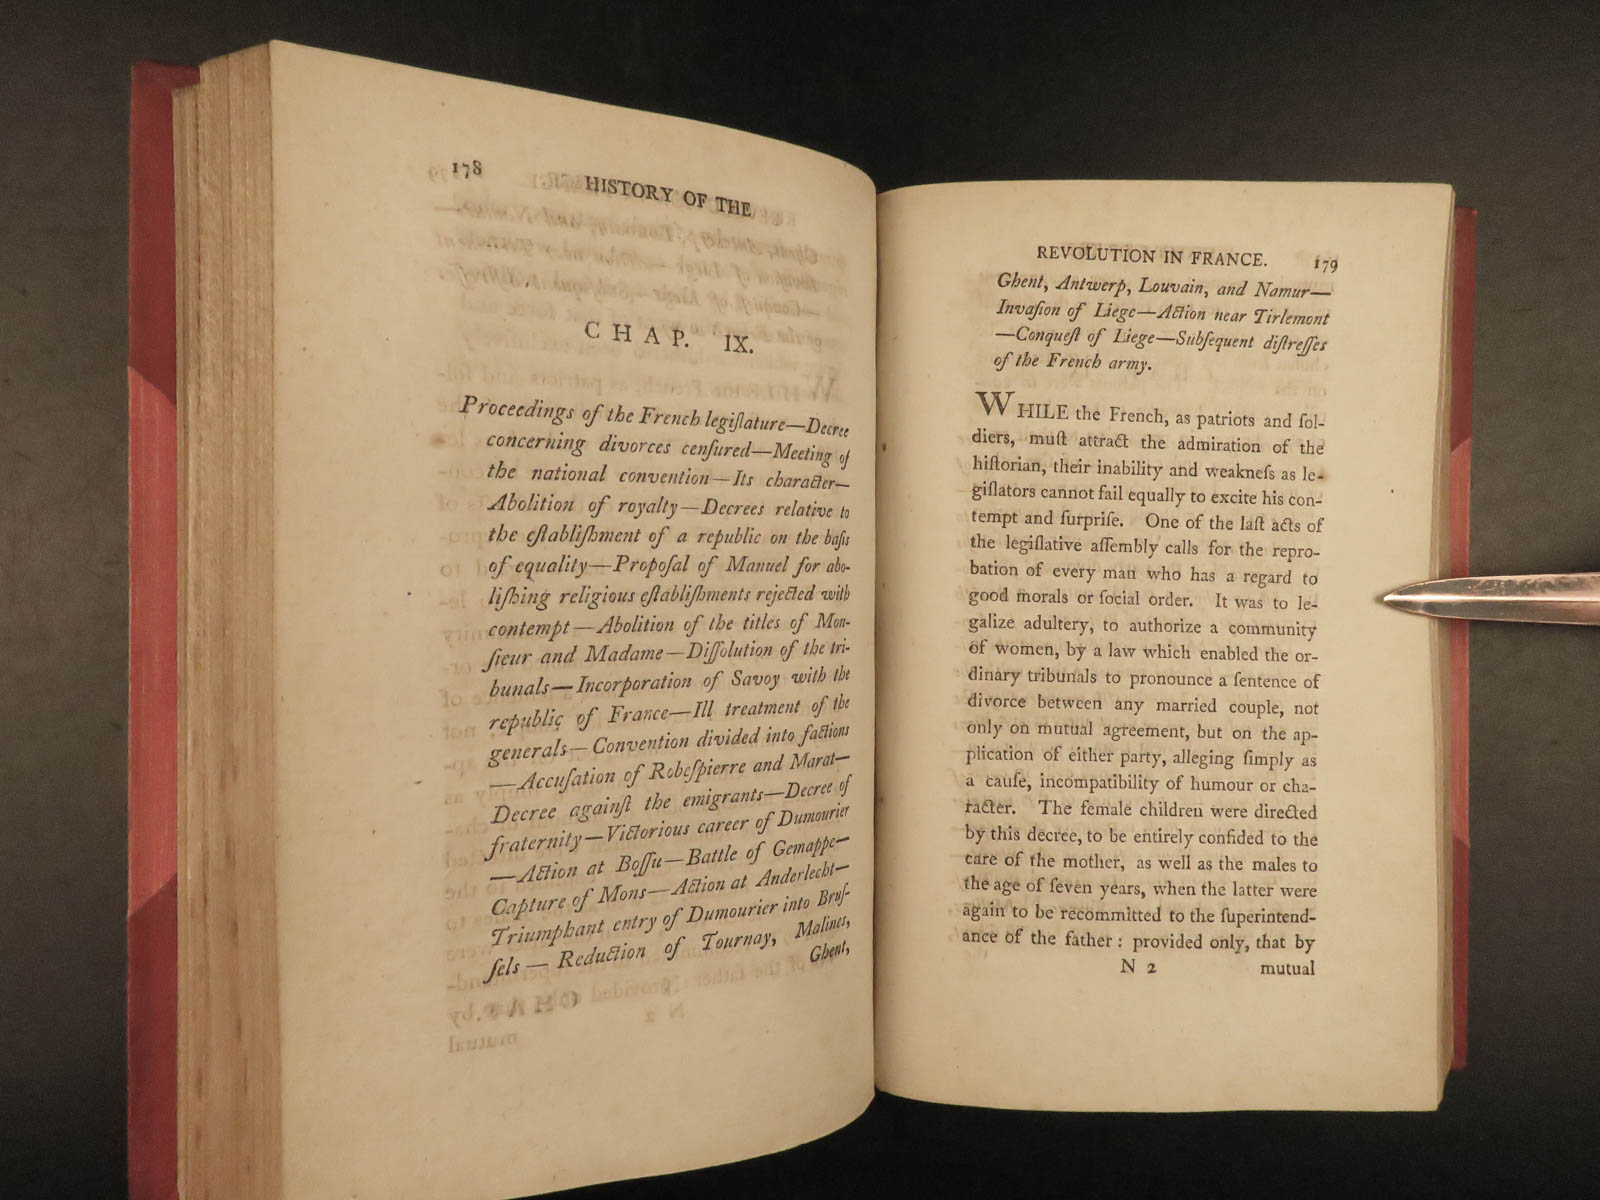 178
HISTORY OF THE
CHAP. IX.
Proceedings of the French legiſlature—Decree
concerning divorces cenſured—Meeting of
the national convention—Its character—
Abolition of royalty—Decrees relative to
the eſtabliſhment of a republic on the baſis
of equality—Propoſal of Manuel for abo-
liſhing religious eſtabliſhments rejected with
contempt—Abolition of the titles of Mon-
ſieur and Madame—Diſſolution of the tri-
bunals—Incorporation of Savoy with the
republic of France—Ill treatment of the
generals—Convention divided into factions
—Accuſation of Robeſpierre and Marat—
Decree againſt the emigrants—Decree of
fraternity—Victorious career of Dumourier
—Action at Boſſu—Battle of Gemappe—
Capture of Mons—Action at Anderlecht—
Triumphant entry of Dumourier into Bruſ-
ſels—Reduction of Tournay, Malines,
Ghent,
REVOLUTION IN FRANCE. 179
Ghent, Antwerp, Louvain, and Namur—
Invaſion of Liege—Action near Tirlemont
—Conqueſt of Liege—Subſequent diſtreſſes
of the French army.
WHILE the French, as patriots and ſol-
diers, muſt attract the admiration of the
hiſtorian, their inability and weakneſs as le-
giſlators cannot fail equally to excite his con-
tempt and ſurpriſe. One of the laſt acts of
the legiſlative aſſembly calls for the repro-
bation of every man who has a regard to
good morals or ſocial order. It was to le-
galize adultery, to authorize a community
of women, by a law which enabled the or-
dinary tribunals to pronounce a ſentence of
divorce between any married couple, not
only on mutual agreement, but on the ap-
plication of either party, alleging ſimply as
a cauſe, incompatibility of humour or cha-
racter. The female children were directed
by this decree, to be entirely confided to the
care of the mother, as well as the males to
the age of ſeven years, when the latter were
again to be recommitted to the ſuperintend-
ance of the father: provided only, that by
N 2 mutual